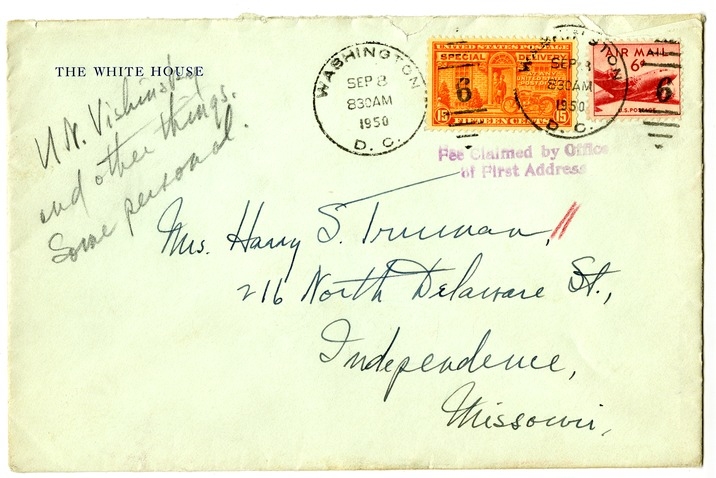 THE WHITE HOUSE
U.N. Vishinsky
and other things.
Some personal.
WASHINGTON
SEP 8
830AM
1950
D. C.
UNITED STATES POSTAGE
SPECIAL DELIVERY
6
15 15
FIFTEEN CENTS
WASHINGTON
SEP 8
830AM
1950
D. C.
AIR MAIL
6¢
6
U.S. POSTAGE
Fee Claimed by Office
of First Address
Mrs. Harry S. Truman,
216 North Delaware St.,
Independence,
Missouri,